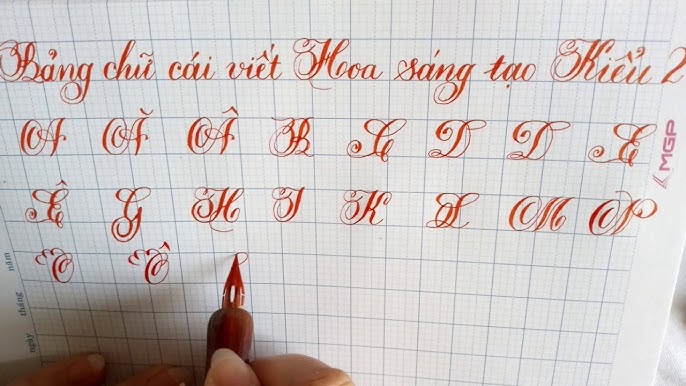 Bảng chữ cái viết Hoa sáng tạo Kiểu 2
A Ă Â B C D Đ E
Ê G H I K L M N
O Ô
MGP
ngày tháng năm